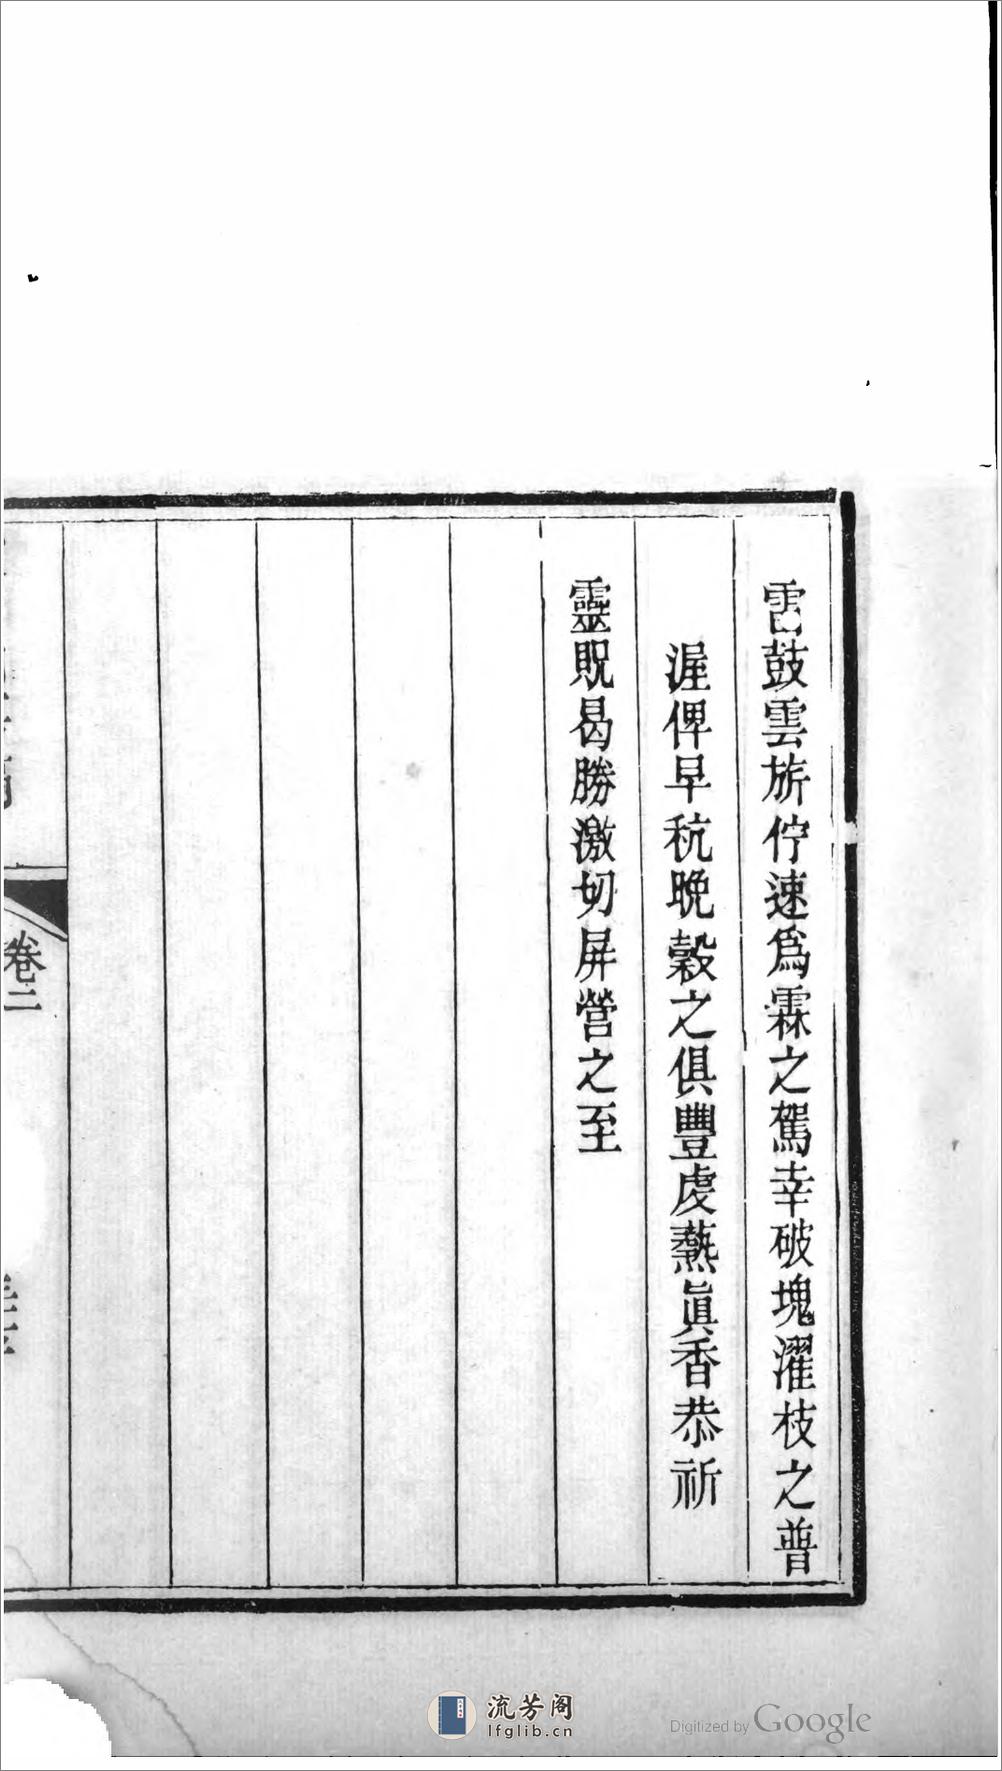 雷鼓雲旂佇速爲霖之駕幸破塊濯枝之普
渥俾早秔晚穀之俱豐虔爇眞香恭祈
靈貺曷勝激切屏營之至
卷二
流芳阁
lfglib.cn
Digitized by Google